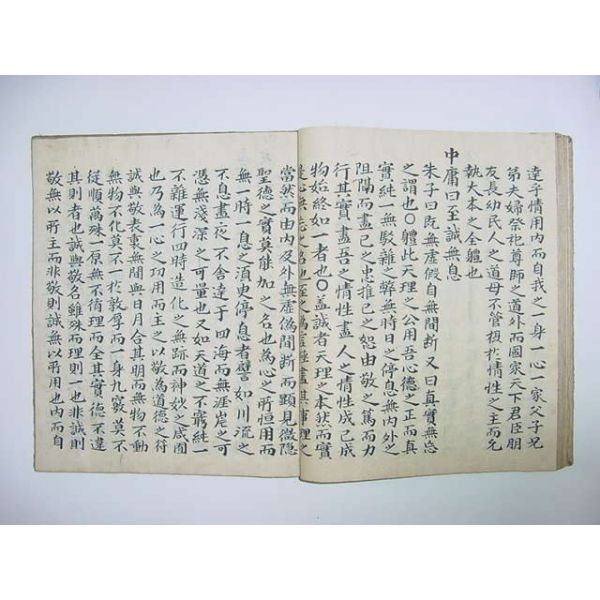 達乎情用內而自我之一身一心一家父子兄
弟夫婦祭祀尊師之道外而國家天下君臣朋
友長幼民人之道毋不管極於情性之主而允
執大本之全體也
中庸曰至誠無息
朱子曰旣無虛假自無間斷又曰真實無息
之謂也○體此天理之公用吾心德之正而真
實純一無駁雜之弊無時日之停息無內外之
阻隔而盡己之忠推己之恕由敬之篤而力
行其實盡吾之情性盡人之情性成己成
物始終如一者也○盖誠者天理之本然而實
心無之名也至之為言極盡其事理之
當然而由內及外無虛僞間斷而顯見微隱
聖德之實莫能加之名也為心之所恒用而
無一時一息之須臾停息者譬如川流之
不息晝夜不舍達于四海而無涯岸之可
憑無淺深之可量也又如天道之不窮純一
不雜運行四時造化之無跡而神妙之咸固
也乃為一心之功用而主之以敬為道德之符
誠與敬表裏無間與日月合其明而無物不動
無物不化莫不一於敦孚而一身九竅莫不
從順萬殊一原無不待理而全其實德不違
其則者也誠與敬名雖殊而理則一也非誠則
敬無以所主而非敬則誠無以所用也內而自